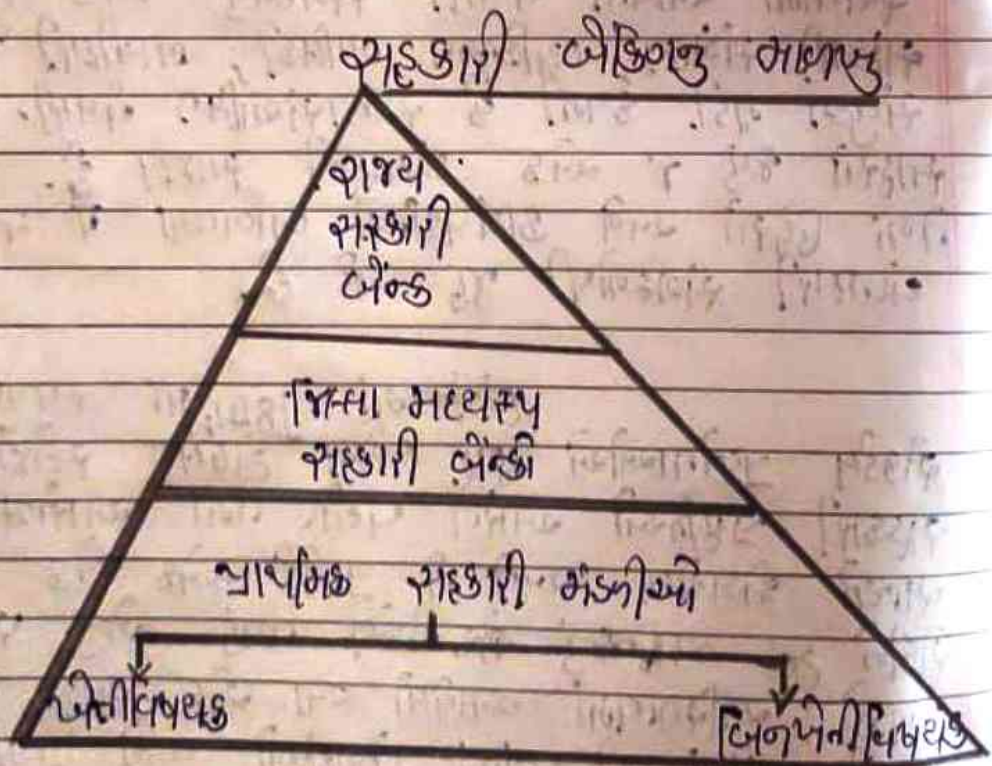 સહકારી બેંકિગનું માળખું
રાજય
સહકારી
બેંન્ક
જિલ્લા મધ્યસ્થ
સહકારી બેન્કો
પ્રાથમિક સહકારી મંડળીઓ
ખેતીવિષયક
બિનખેતીવિષયક